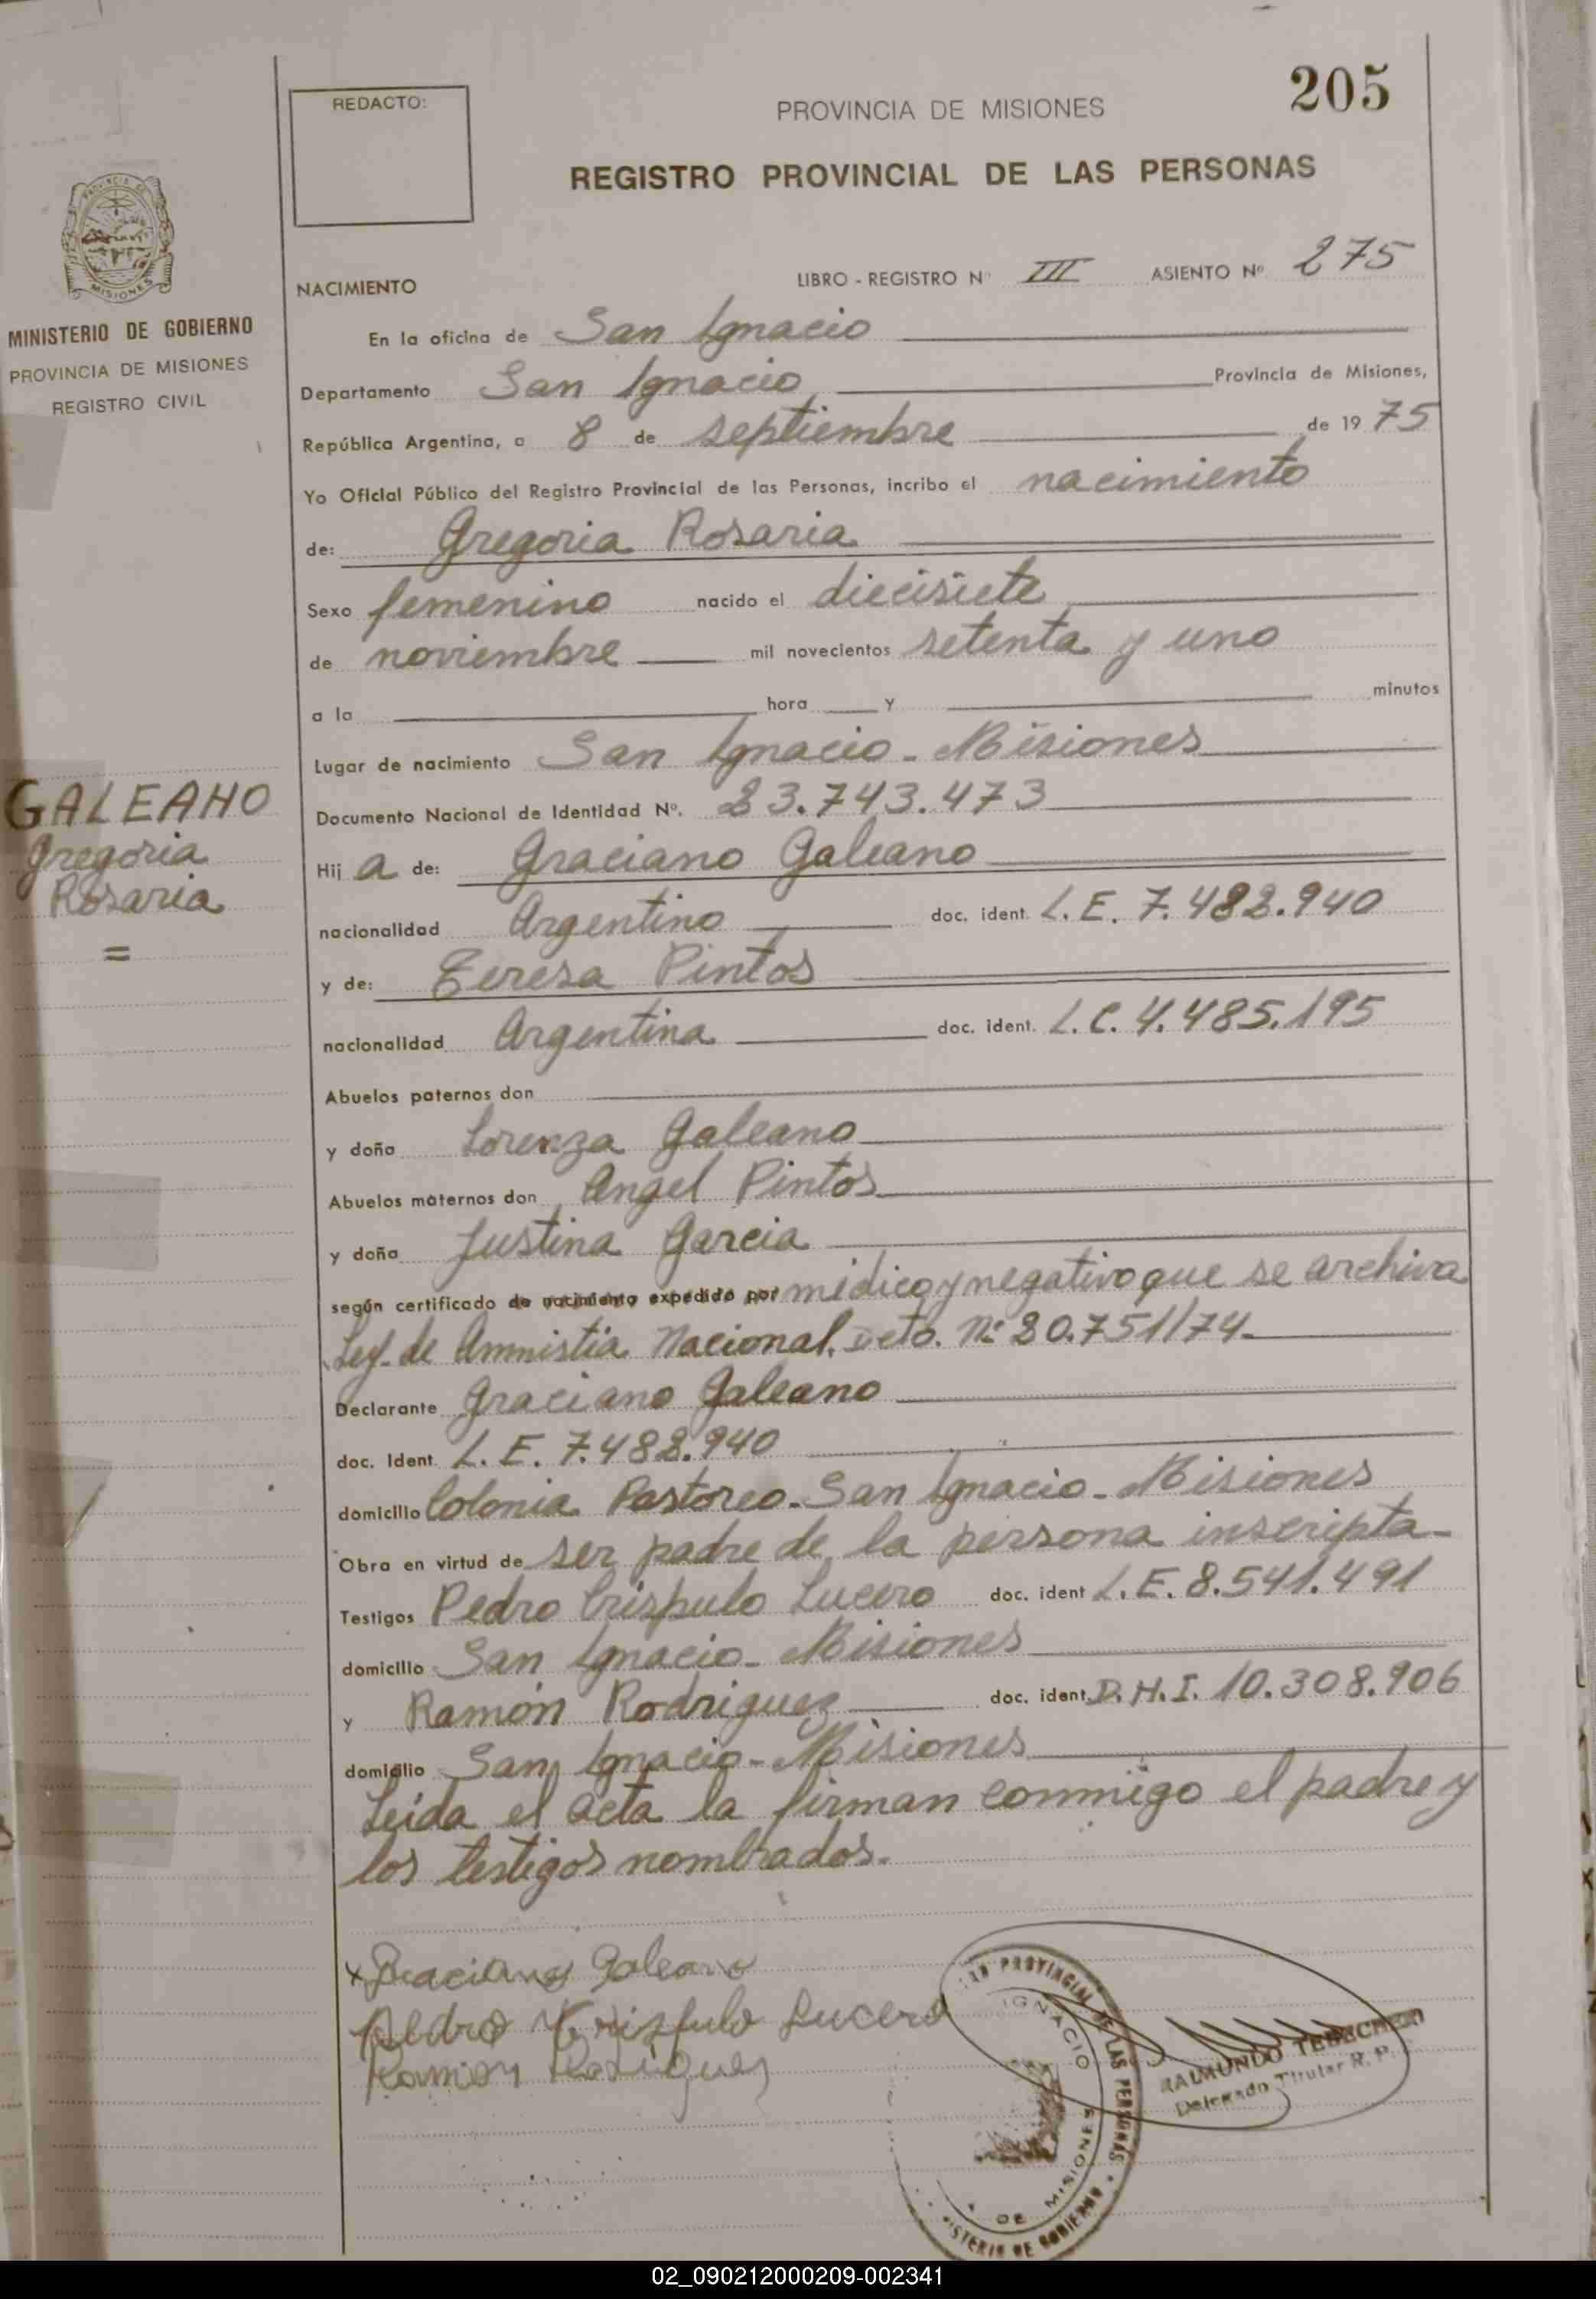 REDACTO:
PROVINCIA DE MISIONES
205
REGISTRO PROVINCIAL DE LAS PERSONAS
MISIONES
MINISTERIO DE GOBIERNO
PROVINCIA DE MISIONES
REGISTRO CIVIL
NACIMIENTO LIBRO - REGISTRO Nº III ASIENTO Nº 275
En la oficina de San Ignacio
Departamento San Ignacio Provincia de Misiones,
República Argentina, a 8 de septiembre de 1975
Yo Oficial Público del Registro Provincial de las Personas, incribo el nacimiento
de: Gregoria Rosaria
Sexo femenino nacido el diecisiete
de noviembre mil novecientos setenta y uno
a la hora y minutos
Lugar de nacimiento San Ignacio - Misiones
GALEANO
Gregoria
Rosaria
=
Documento Nacional de Identidad Nº. 23.743.473
Hij a de: Graciano Galeano
nacionalidad Argentino doc. ident. L.E. 7.482.940
y de: Teresa Pintos
nacionalidad Argentina doc. ident. L.C. 4.485.195
Abuelos paternos don
y doña Lorenza Galeano
Abuelos maternos don Angel Pintos
y doña Justina Garcia
según certificado de nacimiento expedido por médico y negativo que se archiva
Ley. de Amnistia Nacional. Dcto. Nº 20.751/74-
Declarante Graciano Galeano
doc. Ident. L.E. 7.482.940
domicilio Colonia Pastoreo - San Ignacio - Misiones
Obra en virtud de ser padre de la persona inscripta-
Testigos Pedro Críspulo Lucero doc. ident L.E. 8.541.491
domicilio San Ignacio - Misiones
y Ramón Rodriguez doc. ident. D.N.I. 10.308.906
domicilio San Ignacio - Misiones
Leida el acta la firman conmigo el padre y
los testigos nombrados.
x Graciano Galeano
Pedro Crispulo Lucero
Ramon Rodriguez
PROVINCIAL DE LAS PERSONAS
IGNACIO
DE MISIONES
DE GOBIERNO
RAIMUNDO
Delegado Titular R. P.
02_090212000209-002341